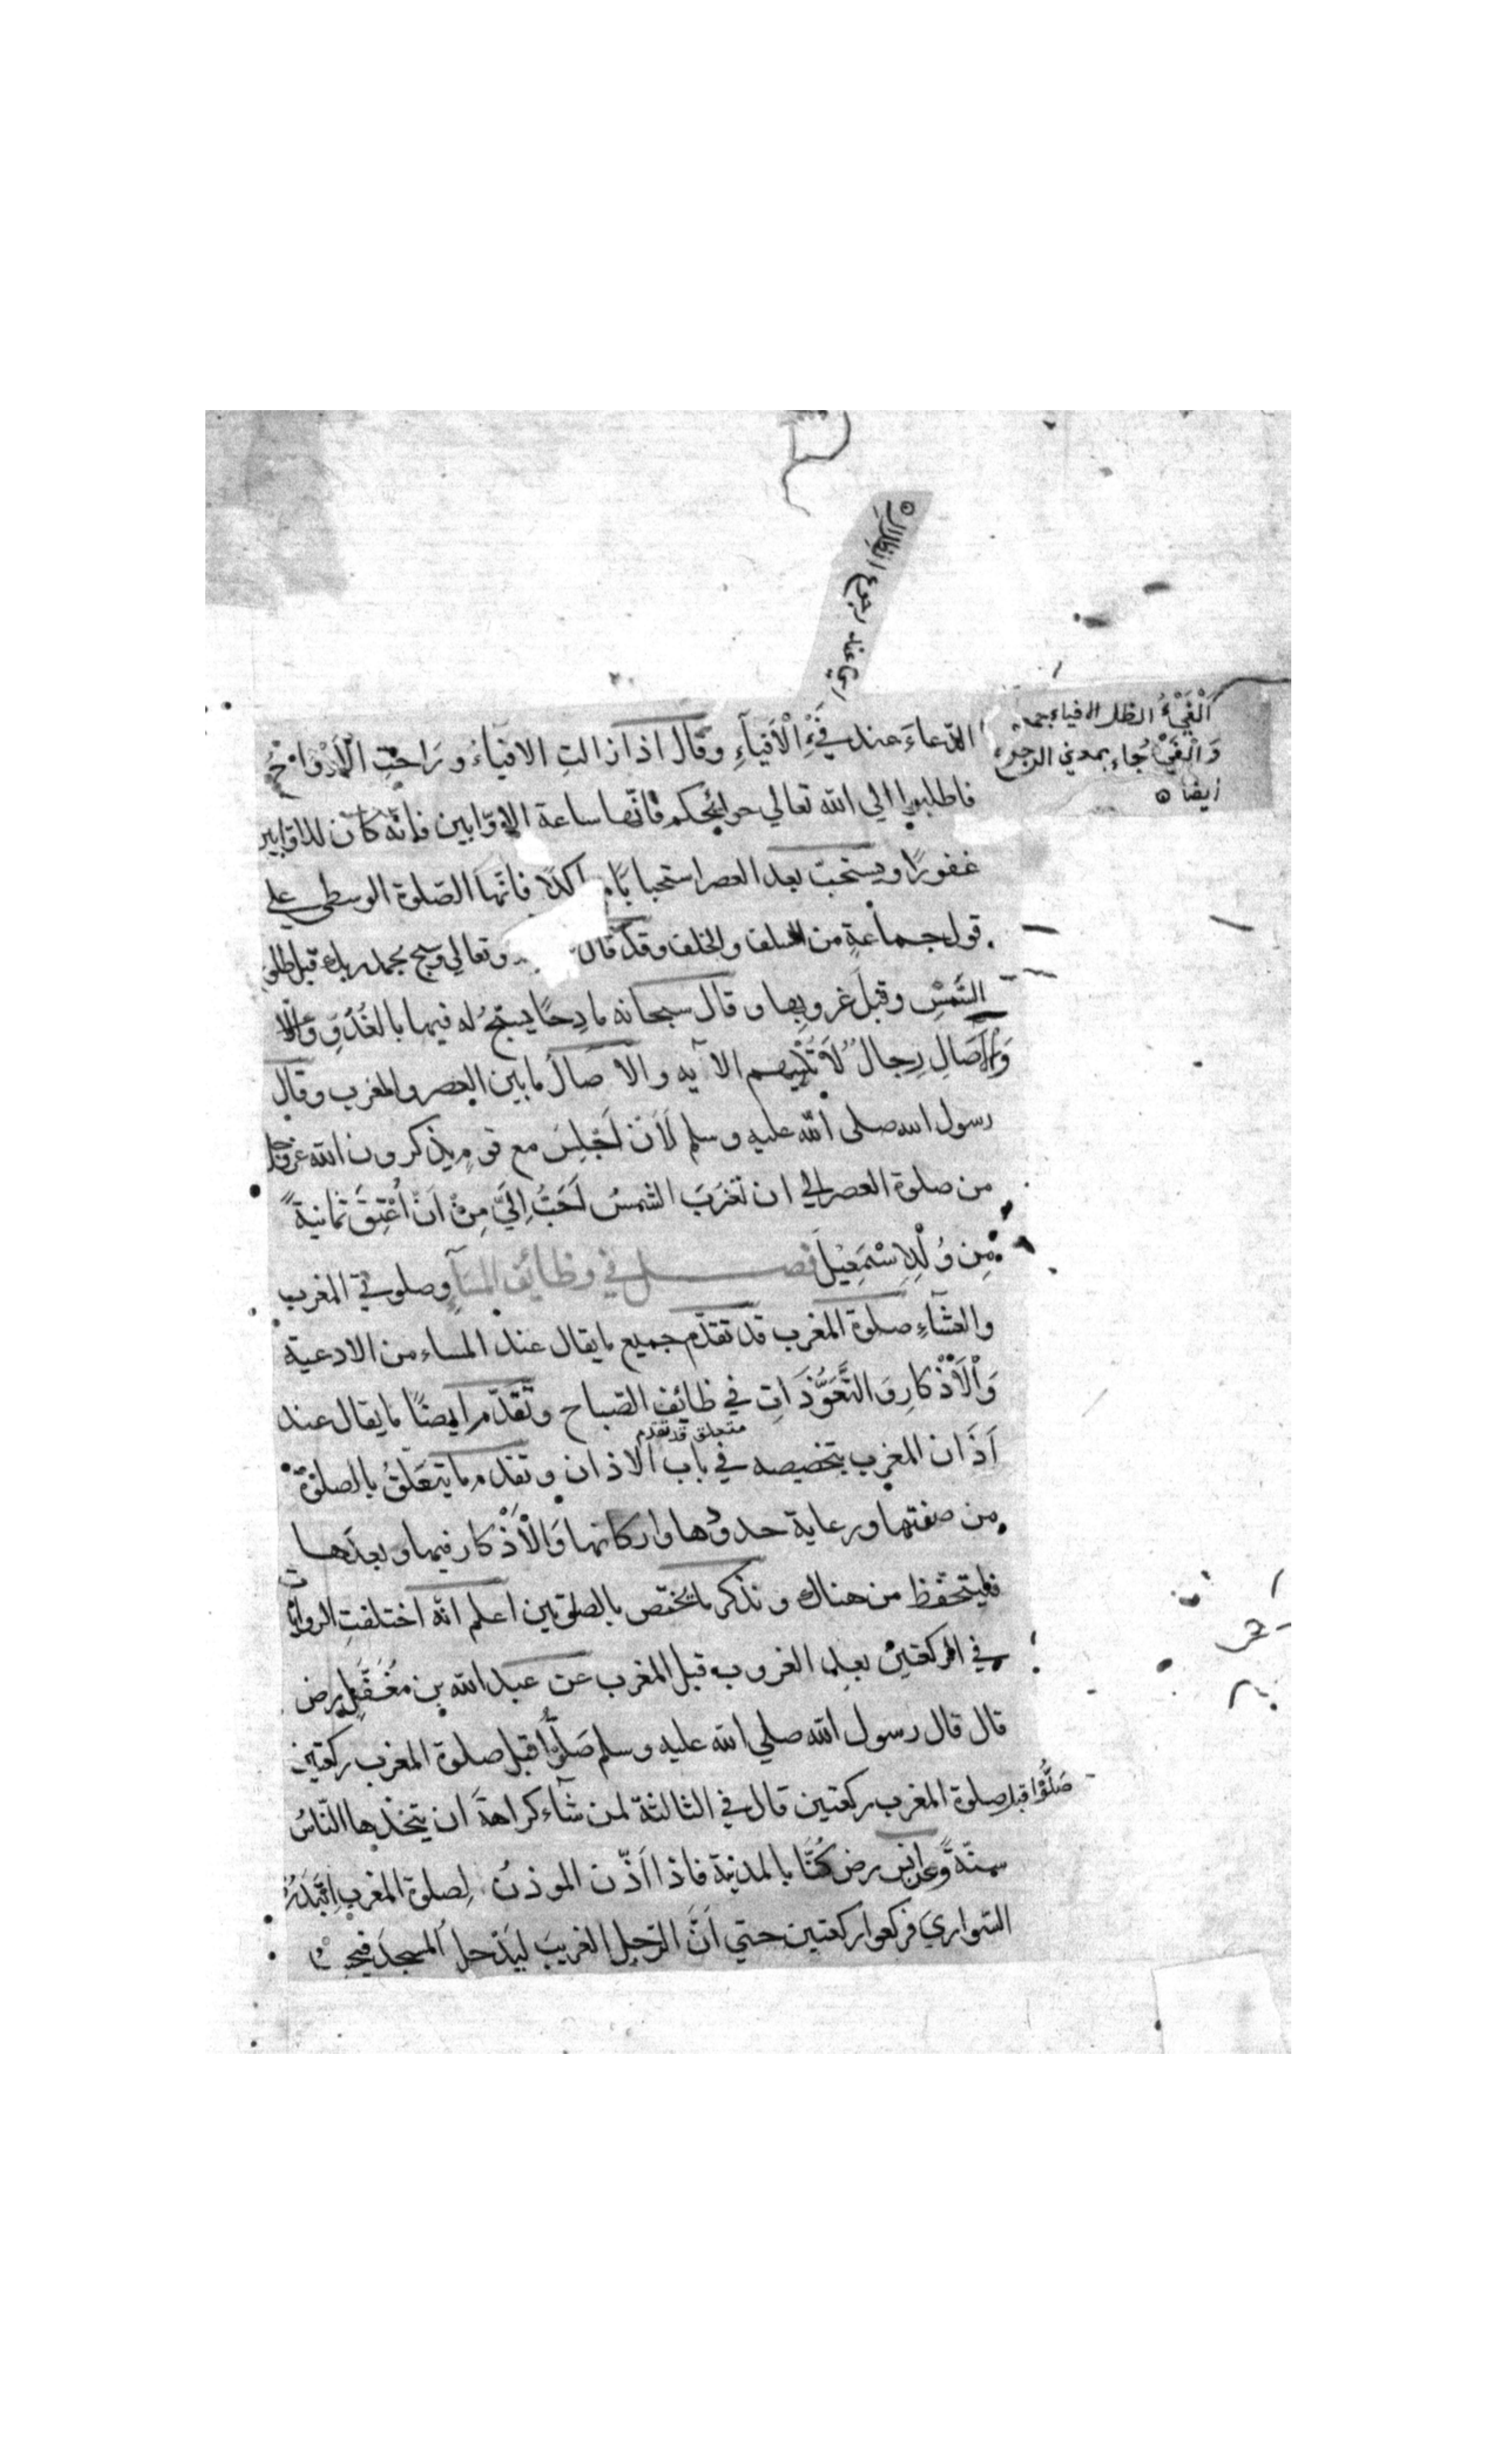 اي عند رجوع الظلال
اَلْفَيْءُ الظل الافياء جمع
وَالْفَيْءُ جاء بمعني الرجوع
ايضا
الدّعاءَ عند فَيْءِ الْاَفْيَآءِ وقال اذا زالتِ الافيآءُ ورَاحتِ الْاَرْوَاحُ
فاطلبوا الي الله تعالي حوائجكم فانّها ساعة الاوّابين فانّه كان للاوّابين
غفورًا ويستحبّ بعد العصر استحبابًا فانّها الصّلوة الوسطي علي
قول جماعةٍ من السلف والخلف وقد قال وتعالي وسبح بحمد ربك قبل طلوع
الشّمْسِ وقبلَ غروبها وقال سبحانه مادِحًا يسبّحُ له فيها بالغُدُوِّ
وَالْآصَالِ رِجالٌ لَا تُلْهِيهم الآيه والآصال ما بين العصر والمغرب وقال
رسول الله صلى الله عليه وسلم لَاَنْ اَجْلِسَ مع قومٍ يذكرون الله عزوجل
من صلوة العصر الي ان تَغْرَبَ الشمسُ اَحَبُّ اِلَيَّ مِنْ اَنْ اُعْتِقَ ثمانيةً
مِن وُلْدِ اِسْمٰعِيْلَ فصل في وظائف المسآءِ وصلوتي المغرب
والعشآءِ صلوة المغرب قد تقدّم جميع ما يقال عند المساء من الادعية
وَالْاَذْكارِ وَالتَّعَوُّذَاتِ في ظائف الصّباح وتقدّم ايضًا ما يقال عند
متعلق قد تقدم
اَذَان المغرب بتخصيصه في باب الاذان وتقدم ما يتعَلّقُ بالصلوٰة
من صفتها ورعاية حدودها واركانها وَالْاَذْكار فيها وبعدَها
فليتحفّظ من هناك ونذكر ما يختصّ بالصلوتين اعلم انّه اختلفتِ الروايات
في الركعتين بعد الغروب قبل المغرب عن عبد الله بن مُغَفَّلٍ رض
قال قال رسول الله صلي الله عليه وسلم صَلُّوْا قبل صلوة المغرب ركعتين
صَلُّوْا قبل صلوة المغرب ركعتين قال في الثالثة لمن شآء كراهةَ ان يتّخذها النّاسُ
سنةً وعن انس رض كُنَّا بالمدينة فاذا اَذّن الموذنُ لِصلوة المغرب اِبْتَدَرُوا
السّواري فركعوا ركعتين حتي اَنَّ الرّجل الغريبَ ليَدْخل المسجدَ